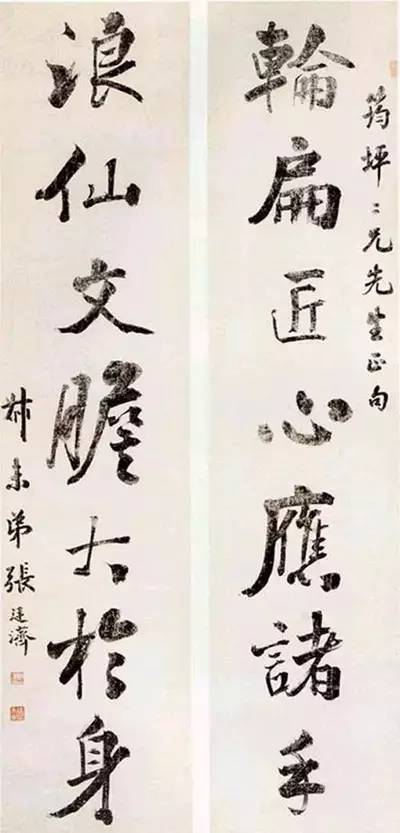 筠坪二兄先生正句
輪扁匠心應諸手
浪仙文膽大於身
叔未弟張廷濟